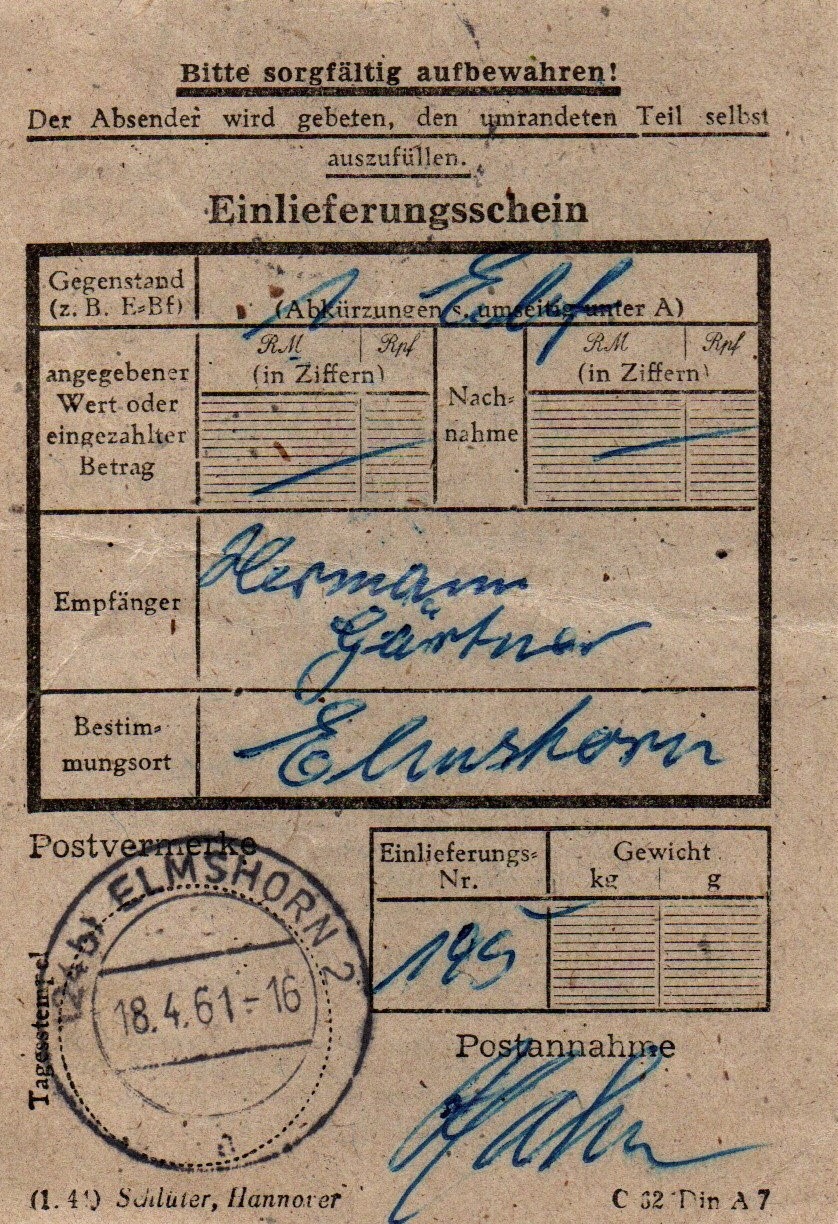 Bitte sorgfältig aufbewahren!
Der Absender wird gebeten, den umrandeten Teil selbst
auszufüllen.
Einlieferungsschein
Gegenstand
(z. B. E=Bf)
1 Ebf
(Abkürzungen s. umseitig unter A)
angegebener
Wert oder
eingezahlter
Betrag
RM Rpf
(in Ziffern)
Nach=
nahme
RM Rpf
(in Ziffern)
Empfänger
Hermann
Gärtner
Bestim=
mungsort
Elmshorn
Postvermerke
Einlieferungs=
Nr.
195
Gewicht
kg g
(24b) ELMSHORN 2
18.4.61-16
a
Tagesstempel
Postannahme
Hahn
(1. 41) Schlüter, Hannover
C 62 Din A 7